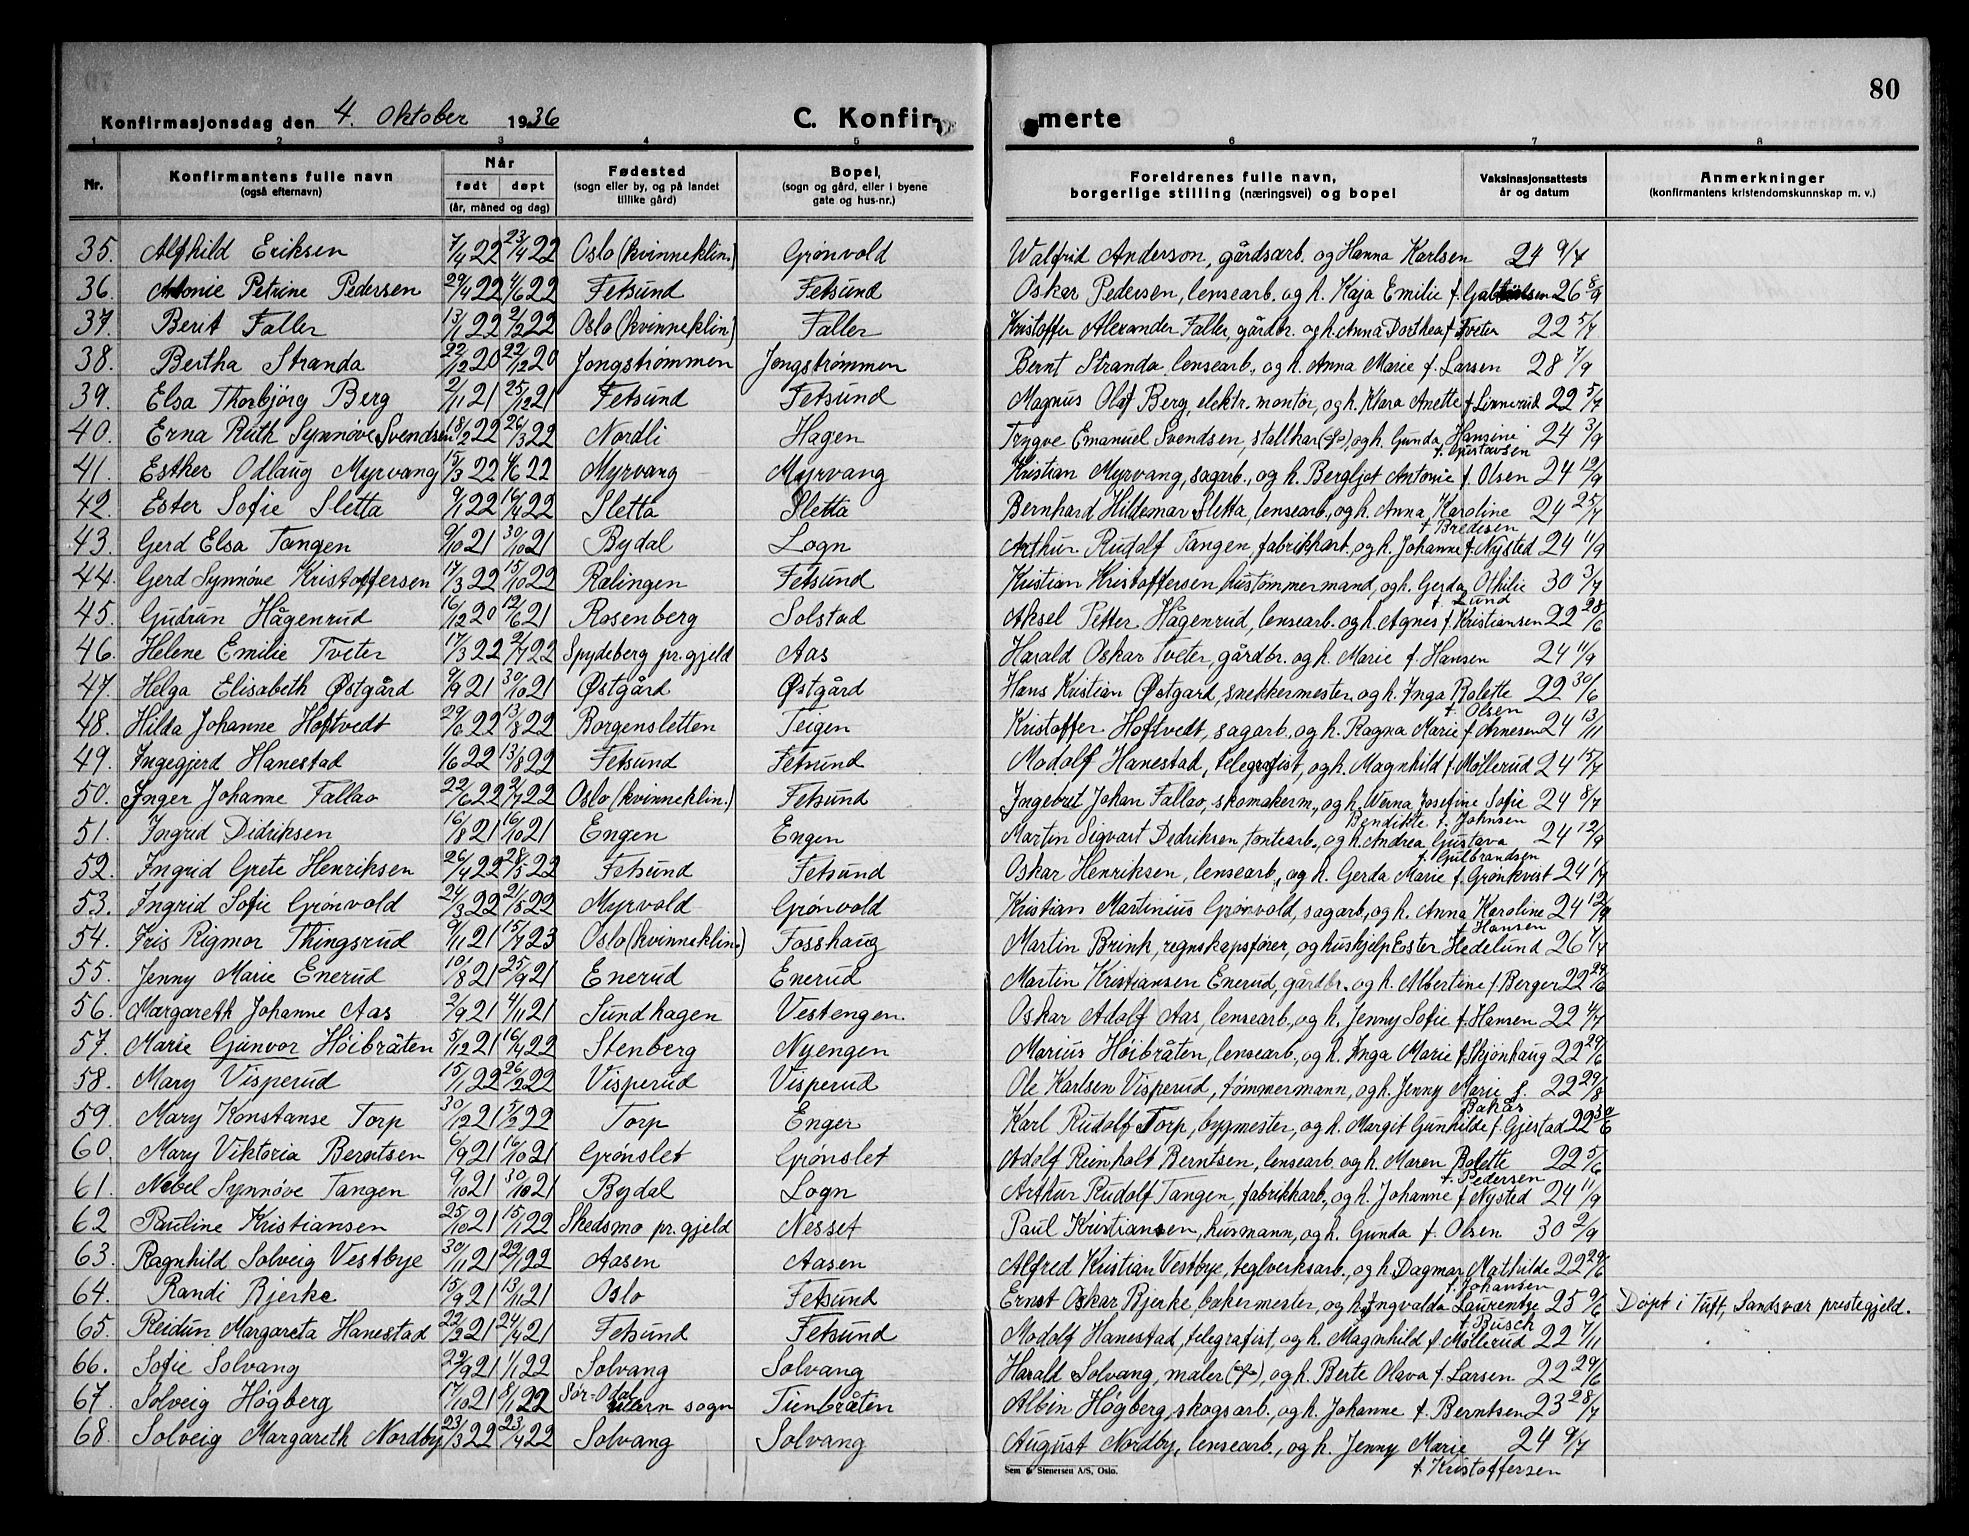 80
Konfirmasjonsdag den 4. Oktober 1936 C. Konfir- merte
1 2 3 4 5 6 7 8
Nr. Konfirmantens fulle navn (også efternavn) Når født døpt (år, måned og dag) Fødested (sogn eller by, og på landet tillike gård) Bopel (sogn og gård, eller i byene gate og hus-nr.) Foreldrenes fulle navn, borgerlige stilling (næringsvei) og bopel Vaksinasjonsattests år og datum Anmerkninger (konfirmantens kristendomskunnskap m. v.)
35. Alfhild Eriksen 7/4 22 23/4 22 Oslo (kvinneklin.) Grønvold Walfrid Anderson, gårdsarb. og Hanna Karlsen 24 9/7
36. Antonie Petrine Pedersen 29/4 22 4/6 22 Fetsund Fetsund Oskar Pedersen, lensearb. og h. Kaja Emilie f. 26 8/9
37. Berit Faller 13/1 22 2/2 22 Oslo (kvinneklin.) Faller Kristoffer Alexander Faller, gårdbr. og h. Anna Dorthea f. Tveter 22 5/7
38. Bertha Stranda 22/12 20 22/12 20 Jongstrømmen Jongstrømmen Bernt Stranda, lensearb., og h. Anna Marie f. Larsen 28 7/9
39. Elsa Thorbjørg Berg 2/11 21 25/12 21 Fetsund Fetsund Magnus Olaf Berg, elektr. montør, og h. Klara Anette f. Linnerud 22 5/7
40. Erna Ruth Synnøve Svendsen 18/2 22 26/3 22 Nordli Hagen Trygve Emanuel Svendsen, stallkar og h. Gunda Hansine f. Gustavsen 24 3/9
41. Esther Odlaug Myrvang 15/3 22 4/6 22 Myrvang Myrvang Kristian Myrvang, sagarb., og h. Bergljot Antonie f. Olsen 24 12/9
42. Ester Sofie Sletta 9/1 22 16/4 22 Sletta Sletta Bernhard Hildemar Sletta, lensearb., og h. Anna Karoline f. Bredesen 24 25/7
43. Gerd Elsa Tangen 9/10 21 30/10 21 Bydal Logn Arthur Rudolf Tangen, fabrikkarb. og h. Johanne f. Nysted 24 11/9
44. Gerd Synnøve Kristoffersen 17/3 22 15/10 22 Rælingen Fetsund Kristian Kristoffersen, hustømmermand, og h. Gerda Othilie f. Lund 30 3/7
45. Gudrun Hågenrud 16/12 20 12/6 21 Rosenberg Solstad Aksel Petter Hågenrud, lensearb. og h. Agnes f. Kristiansen 22 28/6
46. Helene Emilie Tveter 17/3 22 2/7 22 Spydeberg pr.gjeld Aas Harald Oskar Tveter, gårdbr. og h. Marie f. Hansen 24 11/9
47. Helga Elisabeth Østgård 9/9 21 30/10 21 Østgård Østgård Hans Kristian Østgard, snekkermester, og h. Inga Bolette f. Olsen 22 30/6
48. Hilda Johanne Hoftvedt 29/6 22 13/8 22 Borgensletten Teigen Kristoffer Hoftvedt, sagarb., og h. Ragna Marie f. Arnesen 24 13/11
49. Ingegjerd Hanestad 1/6 22 13/8 22 Fetsund Fetsund Modolf Hanestad, telegrafist, og h. Magnhild f. Møllerud 24 15/7
50. Inger Johanne Fallao 22/6 22 2/7 22 Oslo (kvinneklin.) Fetsund Ingebret Johan Fallao, skomakerm., og h. Werna Josefine Sofie Bendikte f. Johnsen 24 8/7
51. Ingrid Didriksen 16/8 21 16/10 21 Engen Engen Martin Sigvart Dedriksen, tomtearb., og h. Andrea Gustava f. Gulbrandsen 24 12/9
52. Ingrid Grete Henriksen 26/4 22 28/5 22 Fetsund Fetsund Oskar Henriksen, lensearb., og h. Gerda Marie f. Grønkvist 24 1/7
53. Ingrid Sofie Grønvold 24/3 22 21/5 22 Myrvold Grønvold Kristian Martinius Grønvold, sagarb., og h. Anna Karoline f. Hansen 24 12/9
54. Iris Rigmor Thingsrud 9/11 21 15/7 23 Oslo (kvinneklin.) Fosshaug Martin Brink, regnskapsfører, og hushjelp Ester Hedelund 26 7/7
55. Jenny Marie Enerud 10/8 21 25/9 21 Enerud Enerud Martin Kristiansen Enerud, gårdbr. og h. Albertine f. Berger 22 29/6
56. Margareth Johanne Aas 2/9 21 4/11 21 Sundhagen Vestengen. Oskar Adolf Aas, lensearb., og h. Jenny Sofie f. Hansen 22 4/7
57. Marie Gunvor Høibråten 5/12 21 16/4 22 Stenberg Nyengen Marius Høibråten, lensearb., og h. Inga Marie f. Skjønhaug 22 29/6
58. Mary Visperud 15/1 22 26/2 22 Visperud Visperud Ole Karlsen Visperud, tømmermann, og h. Jenny Marie f. Bakås 22 29/8
59. Mary Konstanse Torp 30/12 21 5/2 22 Torp Enger Karl Rudolf Torp, bygmester, og h. Margit Gunhilde f. Gjestad 22 30/6
60. Mary Viktoria Berntsen 6/9 21 16/10 21 Grønslet Grønslet Adolf Reinholt Berntsen, lensearb. og h. Maren Bolette f. Pedersen 22 5/6
61. Nebel Synnøve Tangen 9/10 21 30/10 21 Bydal Logn Arthur Rudolf Tangen, fabrikkarb., og h. Johanne f. Nysted 24 11/9
62 Pauline Kristiansen 25/10 21 15/1 22 Skedsmo pr.gjeld Nesset Paul Kristiansen, husmann, og h. Gunda f. Olsen 30 2/9
63. Ragnhild Solveig Vestbye 30/11 21 22/1 22 Aasen Aasen Alfred Kristian Vestbye, teglverksarb., og h. Dagmar Mathilde f. Johansen 22 29/6
64. Randi Bjerke 15/9 21 13/11 21 Oslo Fetsund Ernst Oskar Bjerke, bakermester, og h. Ingvalda Laurentze f. Busch 25 9/6 Døpt i Tuft, Sandsvær prestegjeld.
65. Reidun Margareta Hanestad 22/2 21 24/4 21 Fetsund Fetsund Modolf Hanestad, telegrafist, og h. Magnhild f. Møllerud 22 7/11
66. Sofie Solvang 22/9 21 1/1 22 Solvang Solvang Harald Solvang, maler og h. Berte Olava f. Larsen 22 29/6
67. Solveig Høgberg 17/10 21 8/1 22 Sør-Odal Ullern sogn Tienbråten Albin Høgberg, skogsarb., og h. Johanne f. Berntsen 23 28/7
68. Solveig Margareth Nordby 23/3 22 23/4 22 Solvang Solvang August Nordby, lensearb., og h. Jenny Marie f. Kristoffersen 24 9/7
Sem & Stenersen A/S, Oslo.